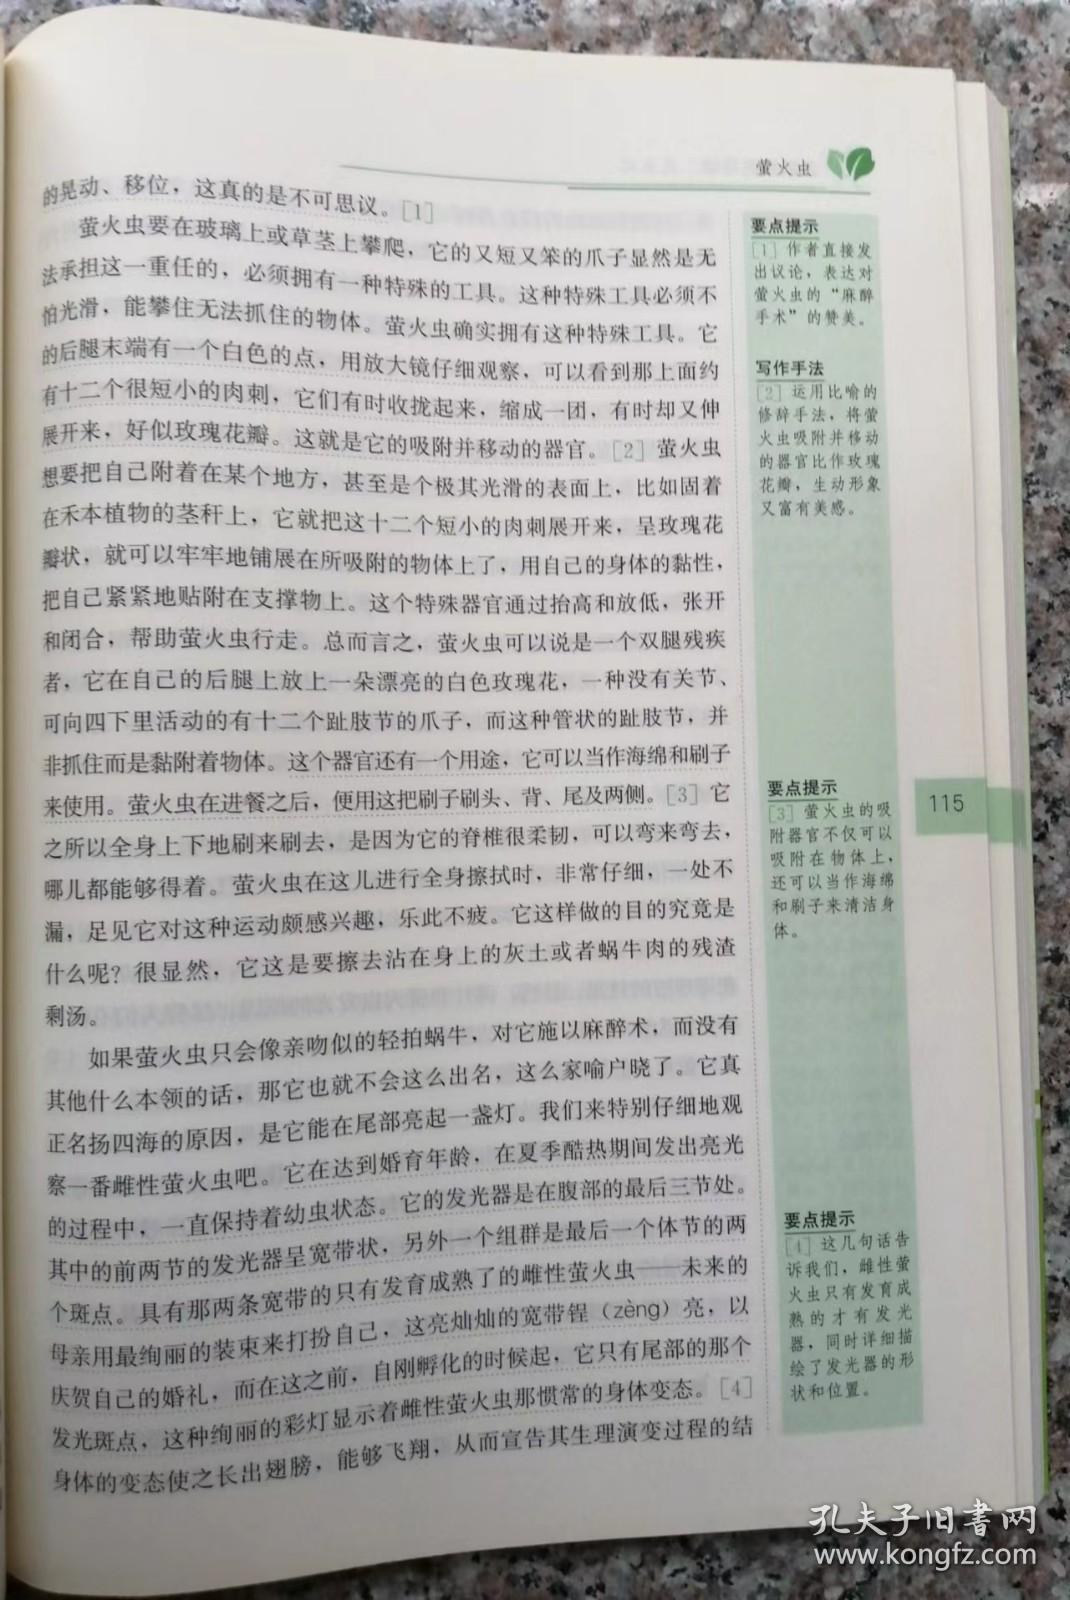 萤火虫
的晃动、移位，这真的是不可思议。[1]
萤火虫要在玻璃上或草茎上攀爬，它的又短又笨的爪子显然是无
法承担这一重任的，必须拥有一种特殊的工具。这种特殊工具必须不
怕光滑，能攀住无法抓住的物体。萤火虫确实拥有这种特殊工具。它
的后腿末端有一个白色的点，用放大镜仔细观察，可以看到那上面约
有十二个很短小的肉刺，它们有时收拢起来，缩成一团，有时却又伸
展开来，好似玫瑰花瓣。这就是它的吸附并移动的器官。[2]萤火虫
想要把自己附着在某个地方，甚至是个极其光滑的表面上，比如固着
在禾本植物的茎秆上，它就把这十二个短小的肉刺展开来，呈玫瑰花
瓣状，就可以牢牢地铺展在所吸附的物体上了，用自己的身体的黏性，
把自己紧紧地贴附在支撑物上。这个特殊器官通过抬高和放低，张开
和闭合，帮助萤火虫行走。总而言之，萤火虫可以说是一个双腿残疾
者，它在自己的后腿上放上一朵漂亮的白色玫瑰花，一种没有关节、
可向四下里活动的有十二个趾肢节的爪子，而这种管状的趾肢节，并
非抓住而是黏附着物体。这个器官还有一个用途，它可以当作海绵和刷子
来使用。萤火虫在进餐之后，便用这把刷子刷头、背、尾及两侧。[3]它
之所以全身上下地刷来刷去，是因为它的脊椎很柔韧，可以弯来弯去，
哪儿都能够得着。萤火虫在这儿进行全身擦拭时，非常仔细，一处不
漏，足见它对这种运动颇感兴趣，乐此不疲。它这样做的目的究竟是
什么呢？很显然，它这是要擦去沾在身上的灰土或者蜗牛肉的残渣
剩汤。
如果萤火虫只会像亲吻似的轻拍蜗牛，对它施以麻醉术，而没有
其他什么本领的话，那它也就不会这么出名，这么家喻户晓了。它真
正名扬四海的原因，是它能在尾部亮起一盏灯。我们来特别仔细地观
察一番雌性萤火虫吧。它在达到婚育年龄，在夏季酷热期间发出亮光
的过程中，一直保持着幼虫状态。它的发光器是在腹部的最后三节处。
其中的前两节的发光器呈宽带状，另外一个组群是最后一个体节的两
个斑点。具有那两条宽带的只有发育成熟了的雌性萤火虫——未来的
母亲用最绚丽的装束来打扮自己，这亮灿灿的宽带锃（zèng）亮，以
庆贺自己的婚礼，而在这之前，自刚孵化的时候起，它只有尾部的那个
发光斑点，这种绚丽的彩灯显示着雌性萤火虫那惯常的身体变态。[4]
身体的变态使之长出翅膀，能够飞翔，从而宣告其生理演变过程的结
要点提示
[1]作者直接发
出议论，表达对
萤火虫的“麻醉
手术”的赞美。
写作手法
[2]运用比喻的
修辞手法，将萤
火虫吸附并移动
的器官比作玫瑰
花瓣，生动形象
又富有美感。
要点提示
[3]萤火虫的吸
附器官不仅可以
吸附在物体上，
还可以当作海绵
和刷子来清洁身
体。
115
要点提示
[4]这几句话告
诉我们，雌性萤
火虫只有发育成
熟的才有发光
器，同时详细描
绘了发光器的形
状和位置。
孔夫子旧书网
www.kongfz.com